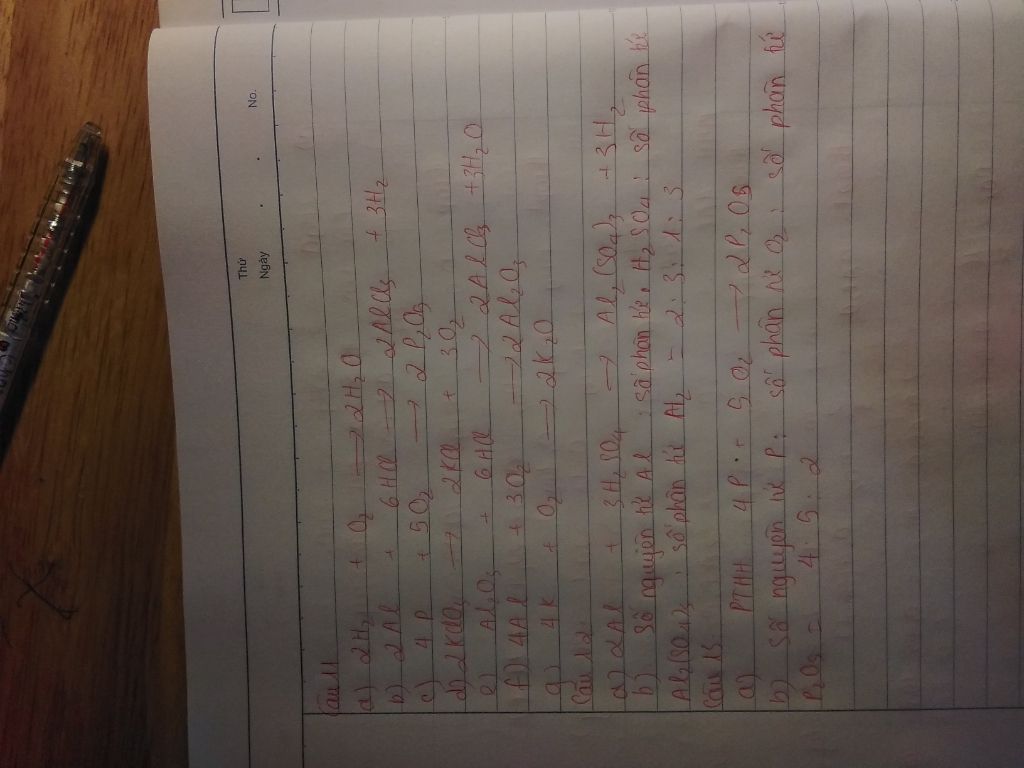 No.
Thứ
Ngày
Câu 11
a) 2H₂ + O₂ → 2H₂O
b) 2Al + 6HCl → 2AlCl₃ + 3H₂
c) 4P + 5O₂ → 2P₂O₅
d) 2KClO₃ → 2KCl + 3O₂
e) Al₂O₃ + 6HCl → 2AlCl₃ + 3H₂O
f) 4Al + 3O₂ → 2Al₂O₃
g) 4K + O₂ → 2K₂O
Câu 12
a) 2Al + 3H₂SO₄ → Al₂(SO₄)₃ + 3H₂
b) Số nguyên tử Al : số phân tử H₂SO₄ : số phân tử
Al₂(SO₄)₃ : số phân tử H₂ = 2 : 3 : 1 : 3
Câu 13
a) PTHH 4P + 5O₂ → 2P₂O₅
b) Số nguyên tử P : số phân tử O₂ : số phân tử
P₂O₅ = 4 : 5 : 2